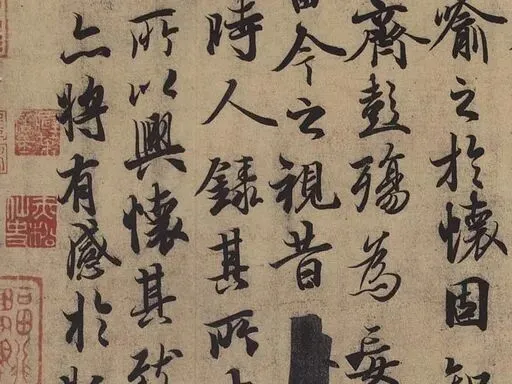 喻之於懷固知
齊彭殤為妄
由今之視昔
時人錄其所
所以興懷其致
亦將有感於